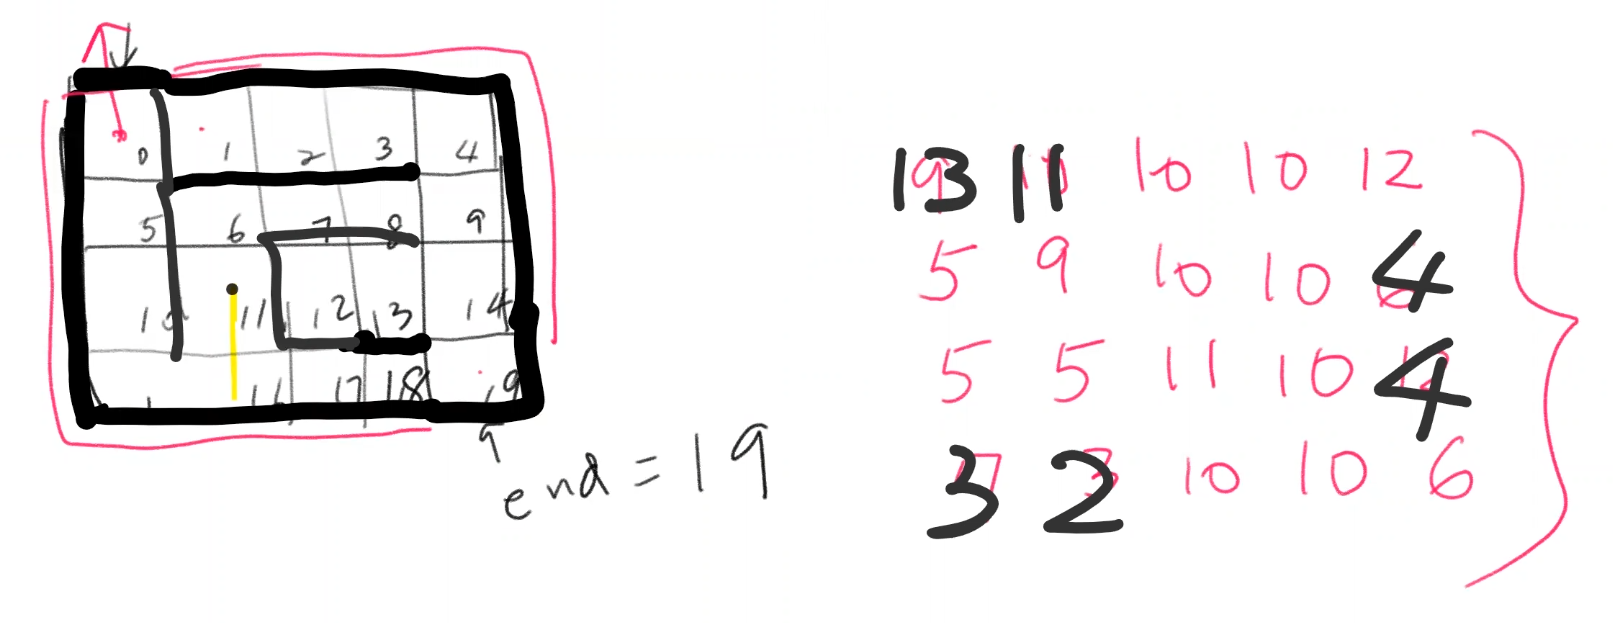 0 1 2 3 4
5 6 7 8 9
10 11 12 13 14
11 17 18 19
9
end = 19
13 11 10 10 12
5 9 10 10 4
5 5 11 10 4
3 2 10 10 6